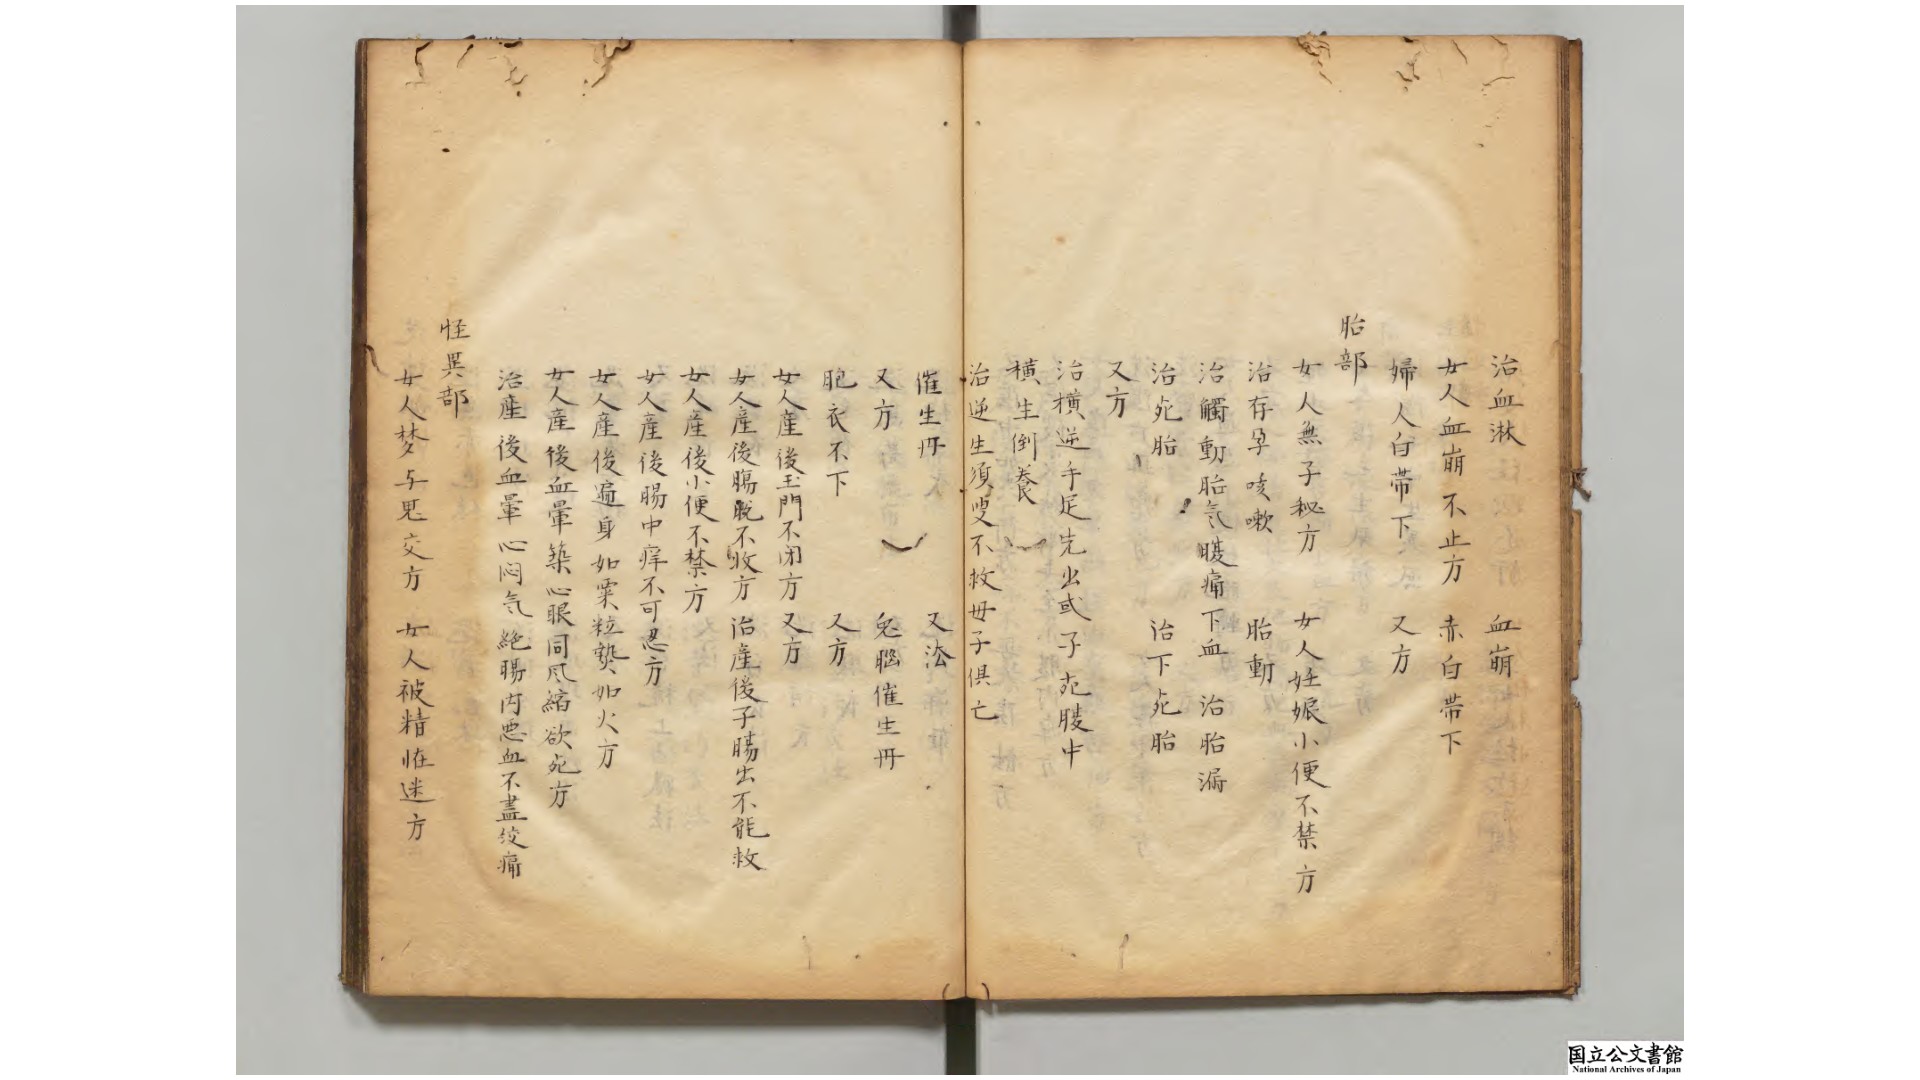 治血淋　血崩
女人血崩不止方　赤白带下
婦人白带下　又方
胎部
女人無子秘方　女人妊娠小便不禁方
治存孕咳嗽　胎動
治觸動胎气腹痛下血　治胎漏
治死胎　治下死胎
又方
治横逆手足先出或子死腹中
横生倒養
治逆生須叟不救母子俱亡
催生丹　又法
又方　兔腦催生丹
胞衣不下　又方
女人産後玉門不闭方　又方
女人産後腸脱不收方　治産後子腸出不能救
女人産後小便不禁方
女人産後腸中痒不可忍方
女人産後遍身如粟粒熱如火方
女人産後血暈築心眼同风縮欲死方
治産後血暈心闷气絶腸内悪血不盡绞痛
怪異部
女人梦与鬼交方　女人被精怪迷方
国立公文書館
National Archives of Japan